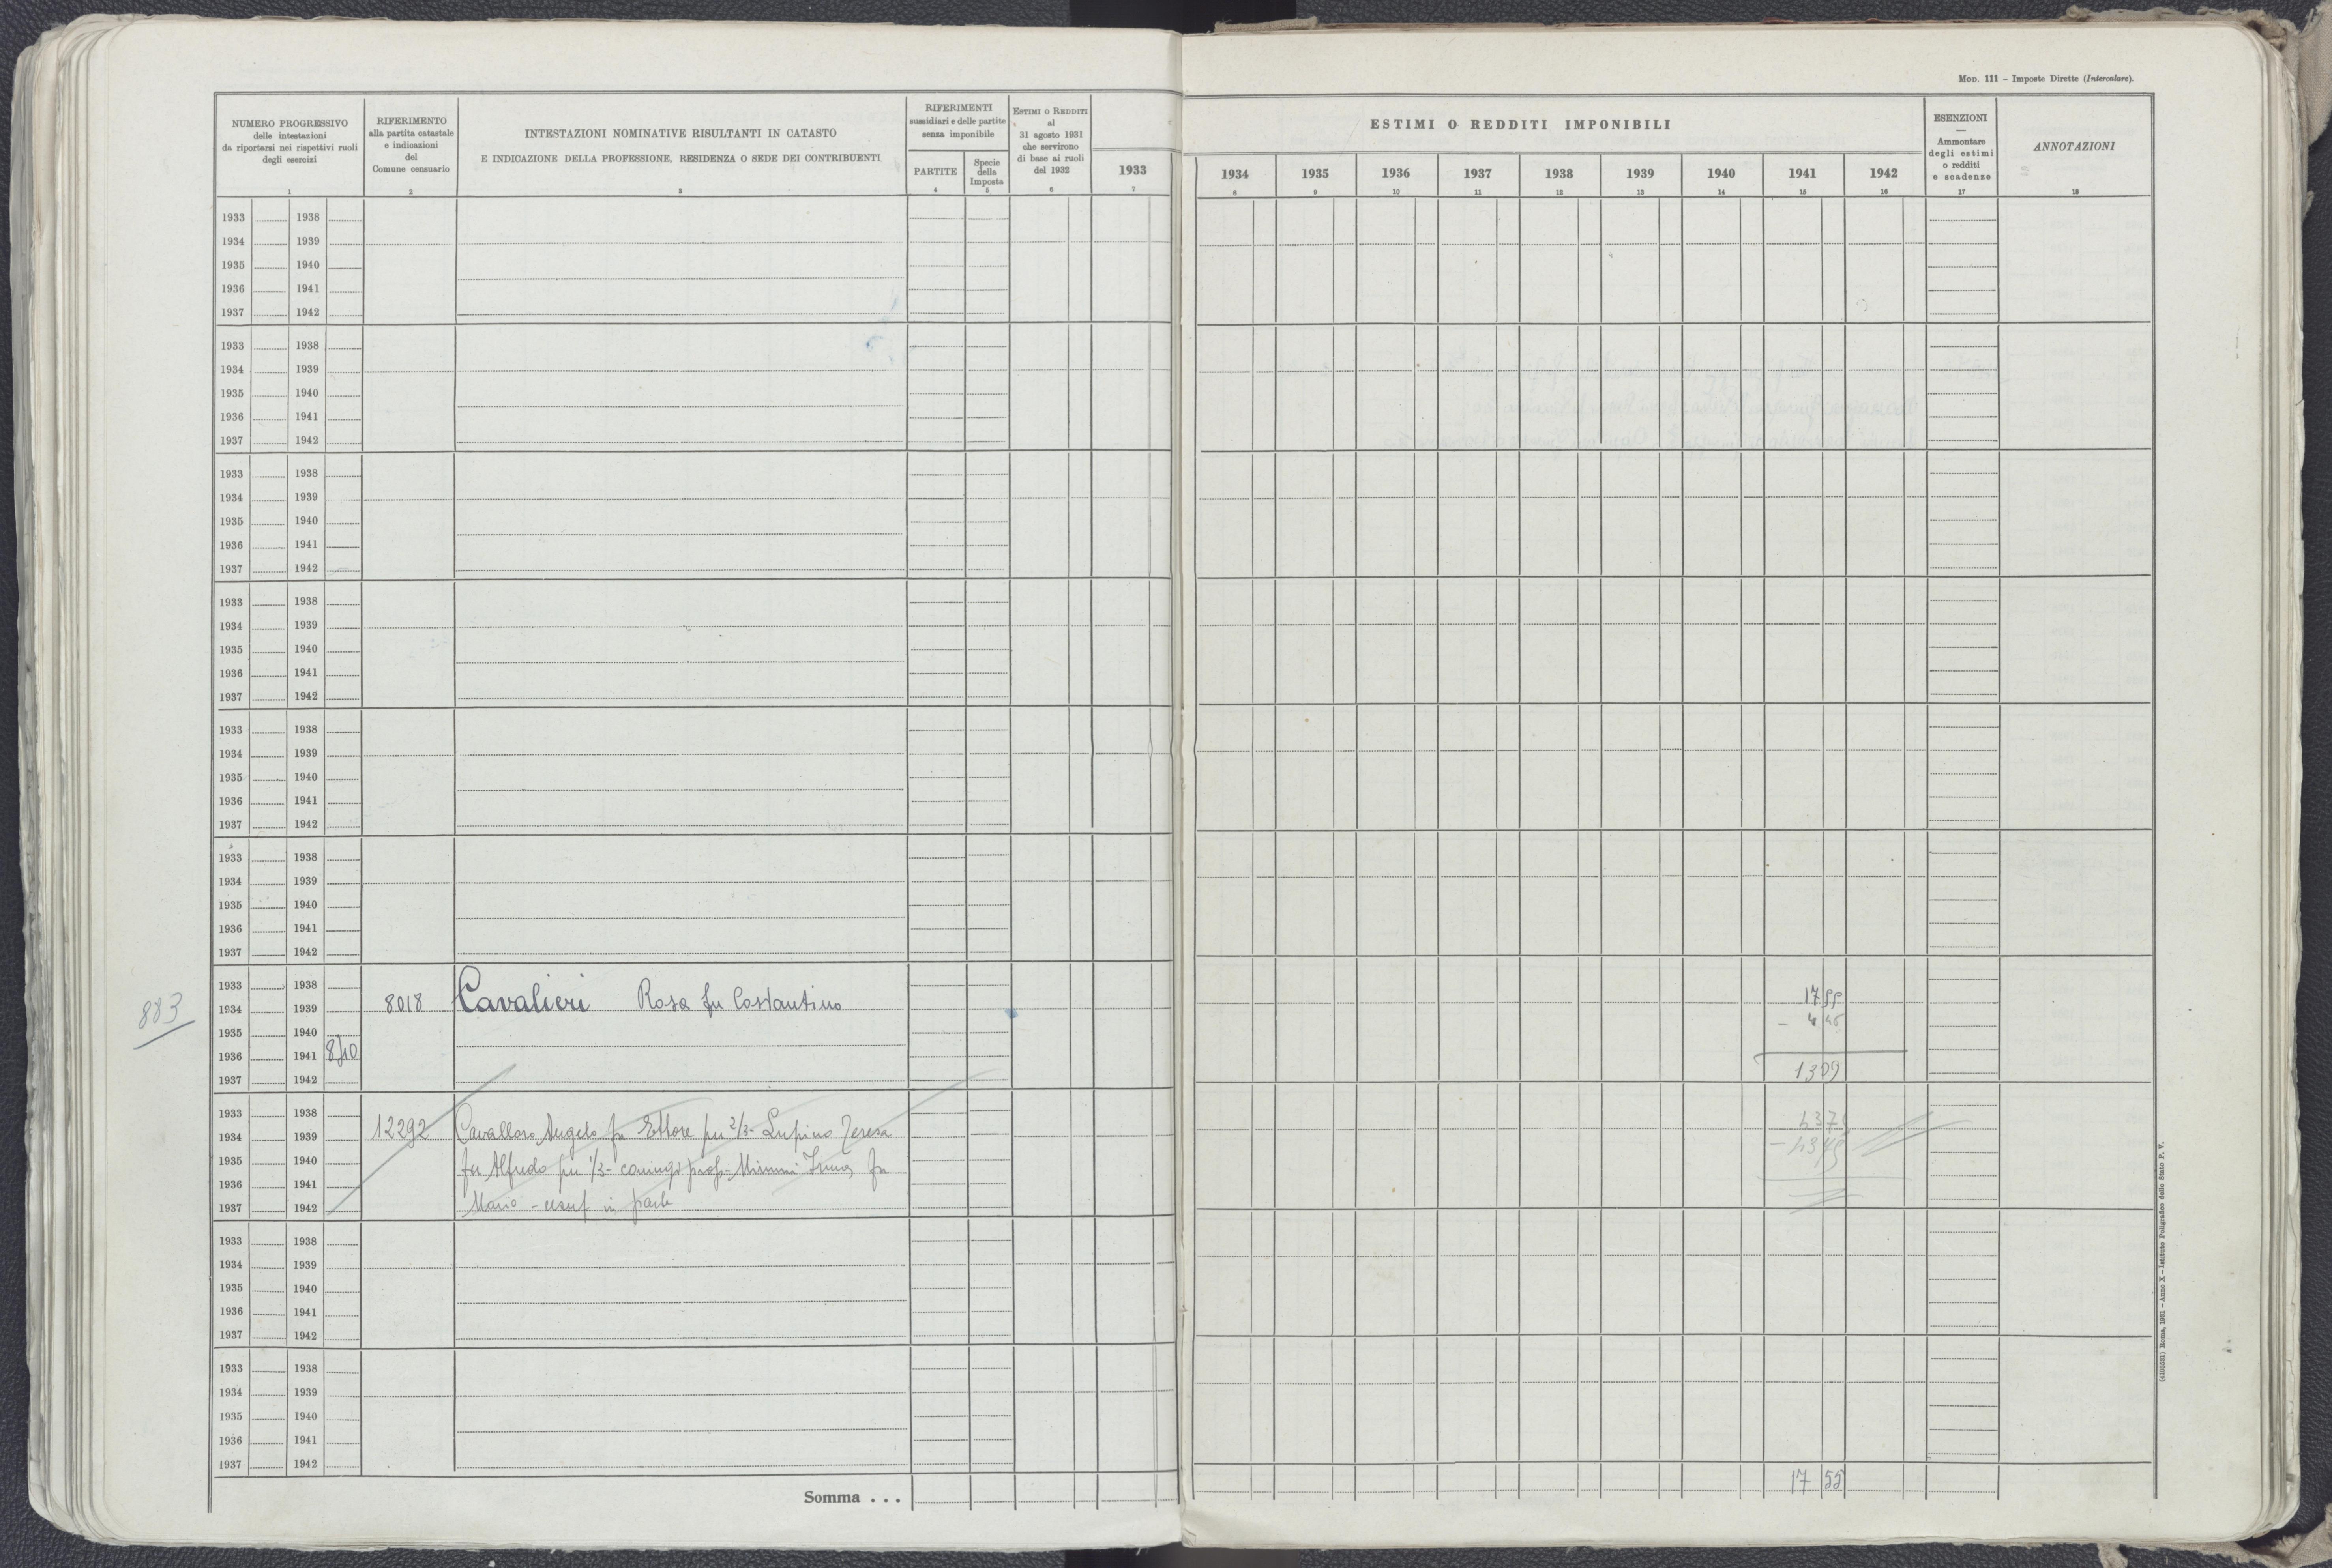 MOD. 111 – Imposte Dirette (Intercalare).
NUMERO PROGRESSIVO
delle intestazioni
da riportarsi nei rispettivi ruoli
degli esercizi
1
RIFERIMENTO
alla partita catastale
e indicazioni
del
Comune censuario
2
INTESTAZIONI NOMINATIVE RISULTANTI IN CATASTO
E INDICAZIONE DELLA PROFESSIONE, RESIDENZA O SEDE DEI CONTRIBUENTI
3
RIFERIMENTI
sussidiari e delle partite
senza imponibile
PARTITE
4
Specie
della
Imposta
5
ESTIMI O REDDITI
al
31 agosto 1931
che servirono
di base ai ruoli
del 1932
6
1933
7
ESTIMI O REDDITI IMPONIBILI
1934 1935 1936 1937 1938 1939 1940 1941 1942
8 9 10 11 12 13 14 15 16
ESENZIONI
—
Ammontare
degli estimi
o redditi
e scadenze
17
ANNOTAZIONI
18
1933 1938
1934 1939
1935 1940
1936 1941
1937 1942
1933 1938
1934 1939
1935 1940
1936 1941
1937 1942
1933 1938
1934 1939
1935 1940
1936 1941
1937 1942
1933 1938
1934 1939
1935 1940
1936 1941
1937 1942
1933 1938
1934 1939
1935 1940
1936 1941
1937 1942
1933 1938
1934 1939
1935 1940
1936 1941
1937 1942
1933 1938
883 1934 1939 8018 Cavalieri Rosa fu Costantino 17 55
1935 1940 – 4 46
1936 1941 8
1937 1942 1309
1933 1938
1934 1939 12292 Cavallaro Angelo fu Ettore per 2/3 - Lupino Teresa
1935 1940 fu Alfredo per 1/3 - coniugi prof - Mimmi Irma fu
1936 1941
1937 1942 Mario - usuf in parte
1933 1938
1934 1939
1935 1940
1936 1941
1937 1942
1933 1938
1934 1939
1935 1940
1936 1941
1937 1942
Somma . . . 17 55
(4103521) Roma, 1931 – Anno X – Istituto Poligrafico dello Stato P. V.